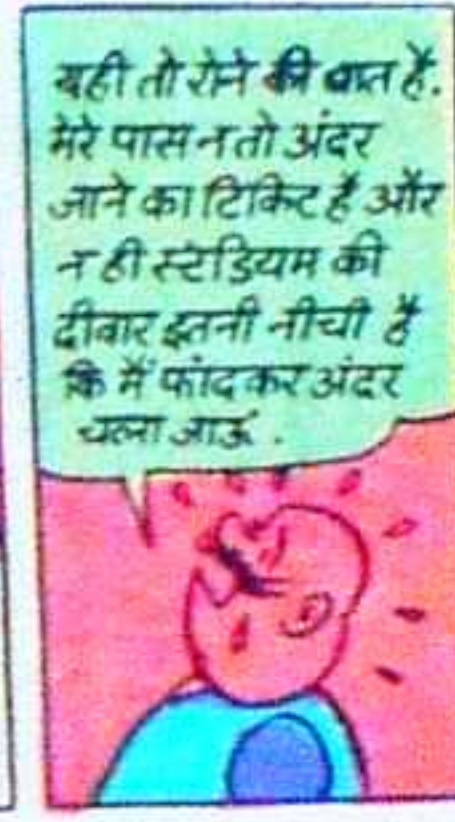 यही तो रोने की बात है.
मेरे पास न तो अंदर
जाने का टिकिट है और
न ही स्टेडियम की
दीवार इतनी नीची है
कि मैं फांदकर अंदर
चला जाऊं .